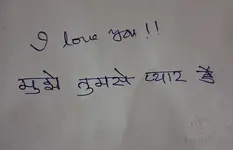 I love you!!
मुझे तुमसे प्यार है